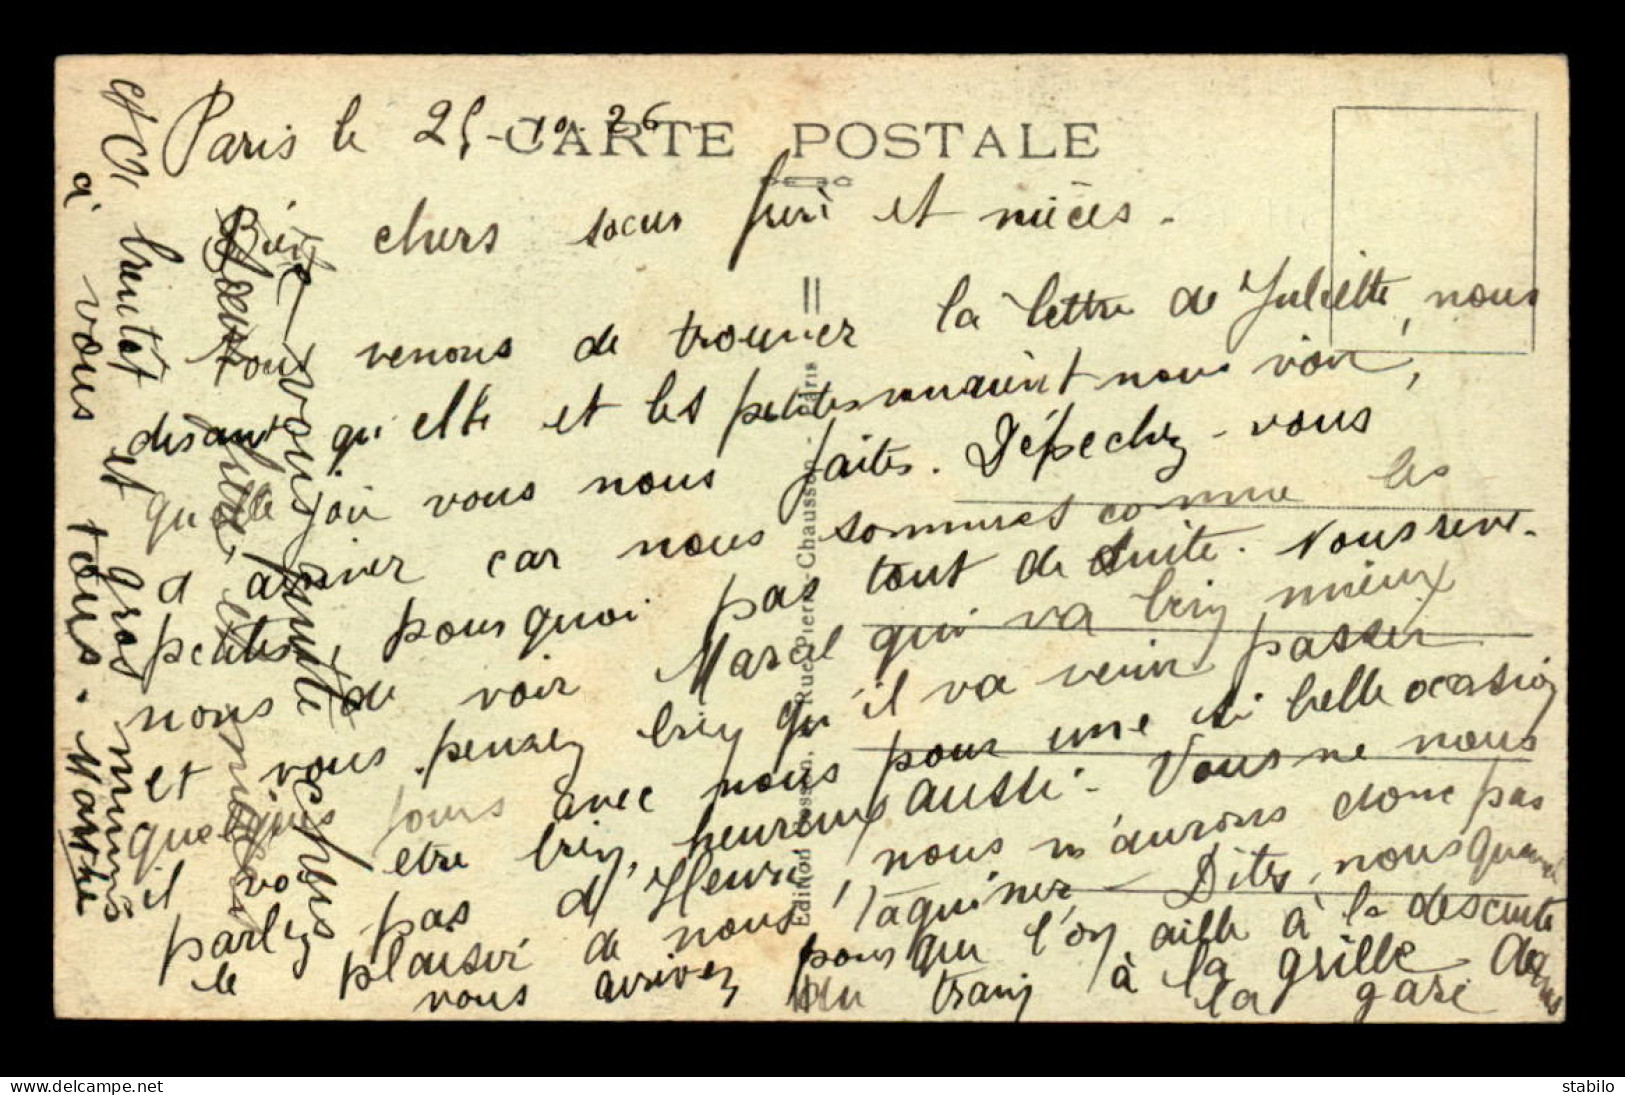 Paris le 25-10-26
CARTE POSTALE
Bien chers soeur frere et nièces.
Nous venons de trouver la lettre de Juliette, nous
disant qu'elle et les petites venaient nous voir,
quelle joie vous nous faites. Dépechez-vous
d'arriver car nous sommes comme les
petites, pourquoi pas tout de suite. Vous serez
nous de voir Marcel qui va bien mieux
et vous pensez bien qu'il va venir passer
quelques jours avec nous pour une si belle ocasion
il va etre bien heureux aussi. Vous ne nous
parlez pas d'Henri, nous n'aurons donc pas
le plaisir de nous taquiner. Dites nous quand
vous arrivez pour que l'on aille à la descente
du train à la grille
la gare
et à bientot et gros mimis
à vous tous. Martine
Edition Chaussson. Rue Pierre-Chausson. Paris